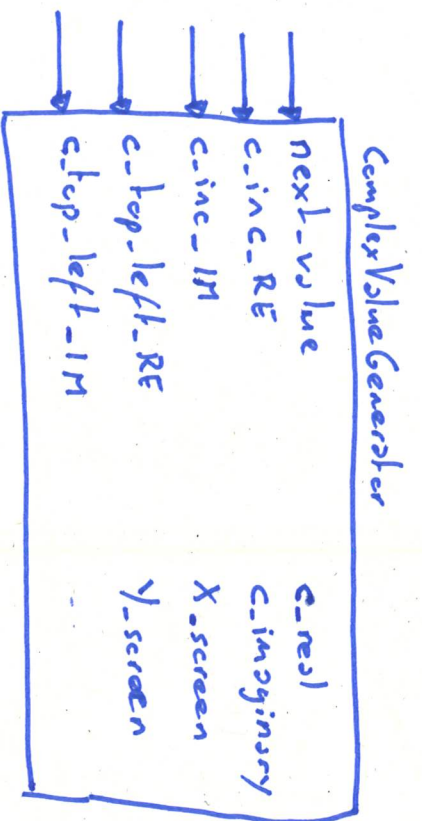 ComplexValueGenerator
next_value
c_inc_RE
c_inc_IM
c_top_left_RE
c_top_left_IM
c_real
c_imaginary
X_screen
Y_screen